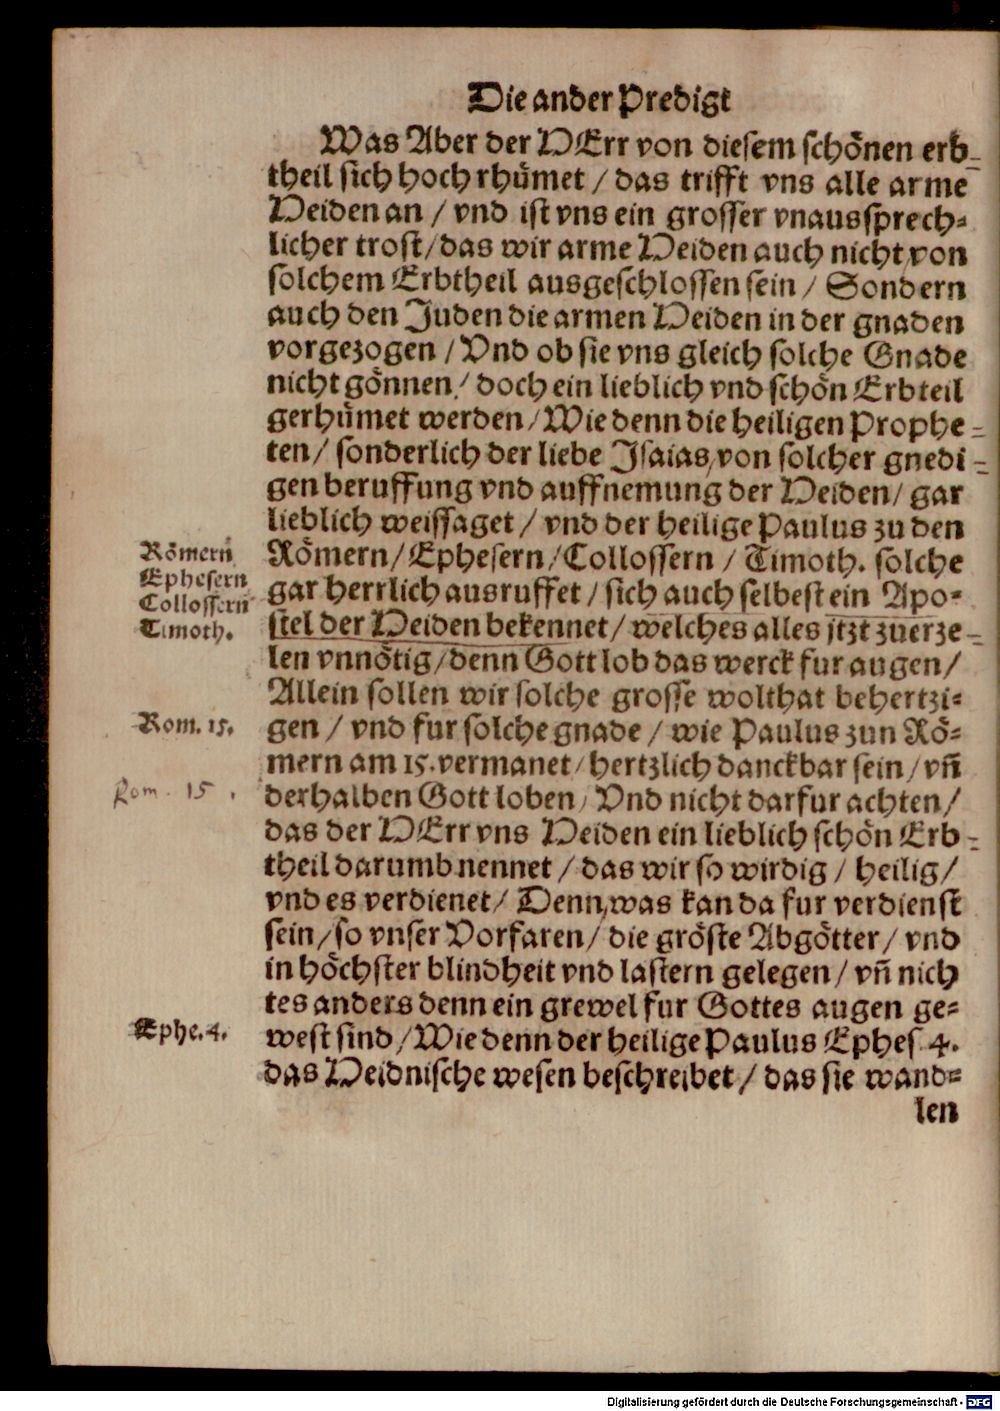 Die ander Predigt
Was Aber der HErr von diesem schönen erb-
theil sich hoch rhümet / das trifft vns alle arme
Heiden an / vnd ist vns ein grosser vnaussprech-
licher trost / das wir arme Heiden auch nicht von
solchem Erbtheil ausgeschlossen sein / Sondern
auch den Juden die armen Heiden in der gnaden
vorgezogen / Vnd ob sie vns gleich solche Gnade
nicht gönnen / doch ein lieblich vnd schön Erbteil
gerhümet werden / Wie denn die heiligen Prophe-
ten / sonderlich der liebe Isaias, von solcher gnedi-
gen beruffung vnd auffnemung der Heiden / gar
lieblich weissaget / vnd der heilige Paulus zu den
Römern / Ephesern / Collossern / Timoth. solche
gar herrlich ausruffet / sich auch selbest ein Apo-
stel der Heiden bekennet / welches alles jtzt zuerze-
len vnnötig / denn Gott lob das werck fur augen /
Allein sollen wir solche grosse wolthat behertzi-
gen / vnd fur solche gnade / wie Paulus zun Rö-
mern am 15. vermanet / hertzlich danckbar sein / vn̄
derhalben Gott loben / Vnd nicht darfur achten /
das der HErr vns Heiden ein lieblich schön Erb-
theil darumb nennet / das wir so wirdig / heilig /
vnd es verdienet / Denn, was kan da fur verdienst
sein / so vnser Vorfaren / die gröste Abgötter / vnd
in höchster blindheit vnd lastern gelegen / vn̄ nich
tes anders denn ein grewel fur Gottes augen ge-
west sind / Wie denn der heilige Paulus Ephes. 4.
das Heidnische wesen beschreibet / das sie wand-
len
Römern
Ephesern
Collossern
Timoth.
Rom. 15.
Rom. 15.
Ephe. 4.
Digitalisierung gefördert durch die Deutsche Forschungsgemeinschaft - DFG